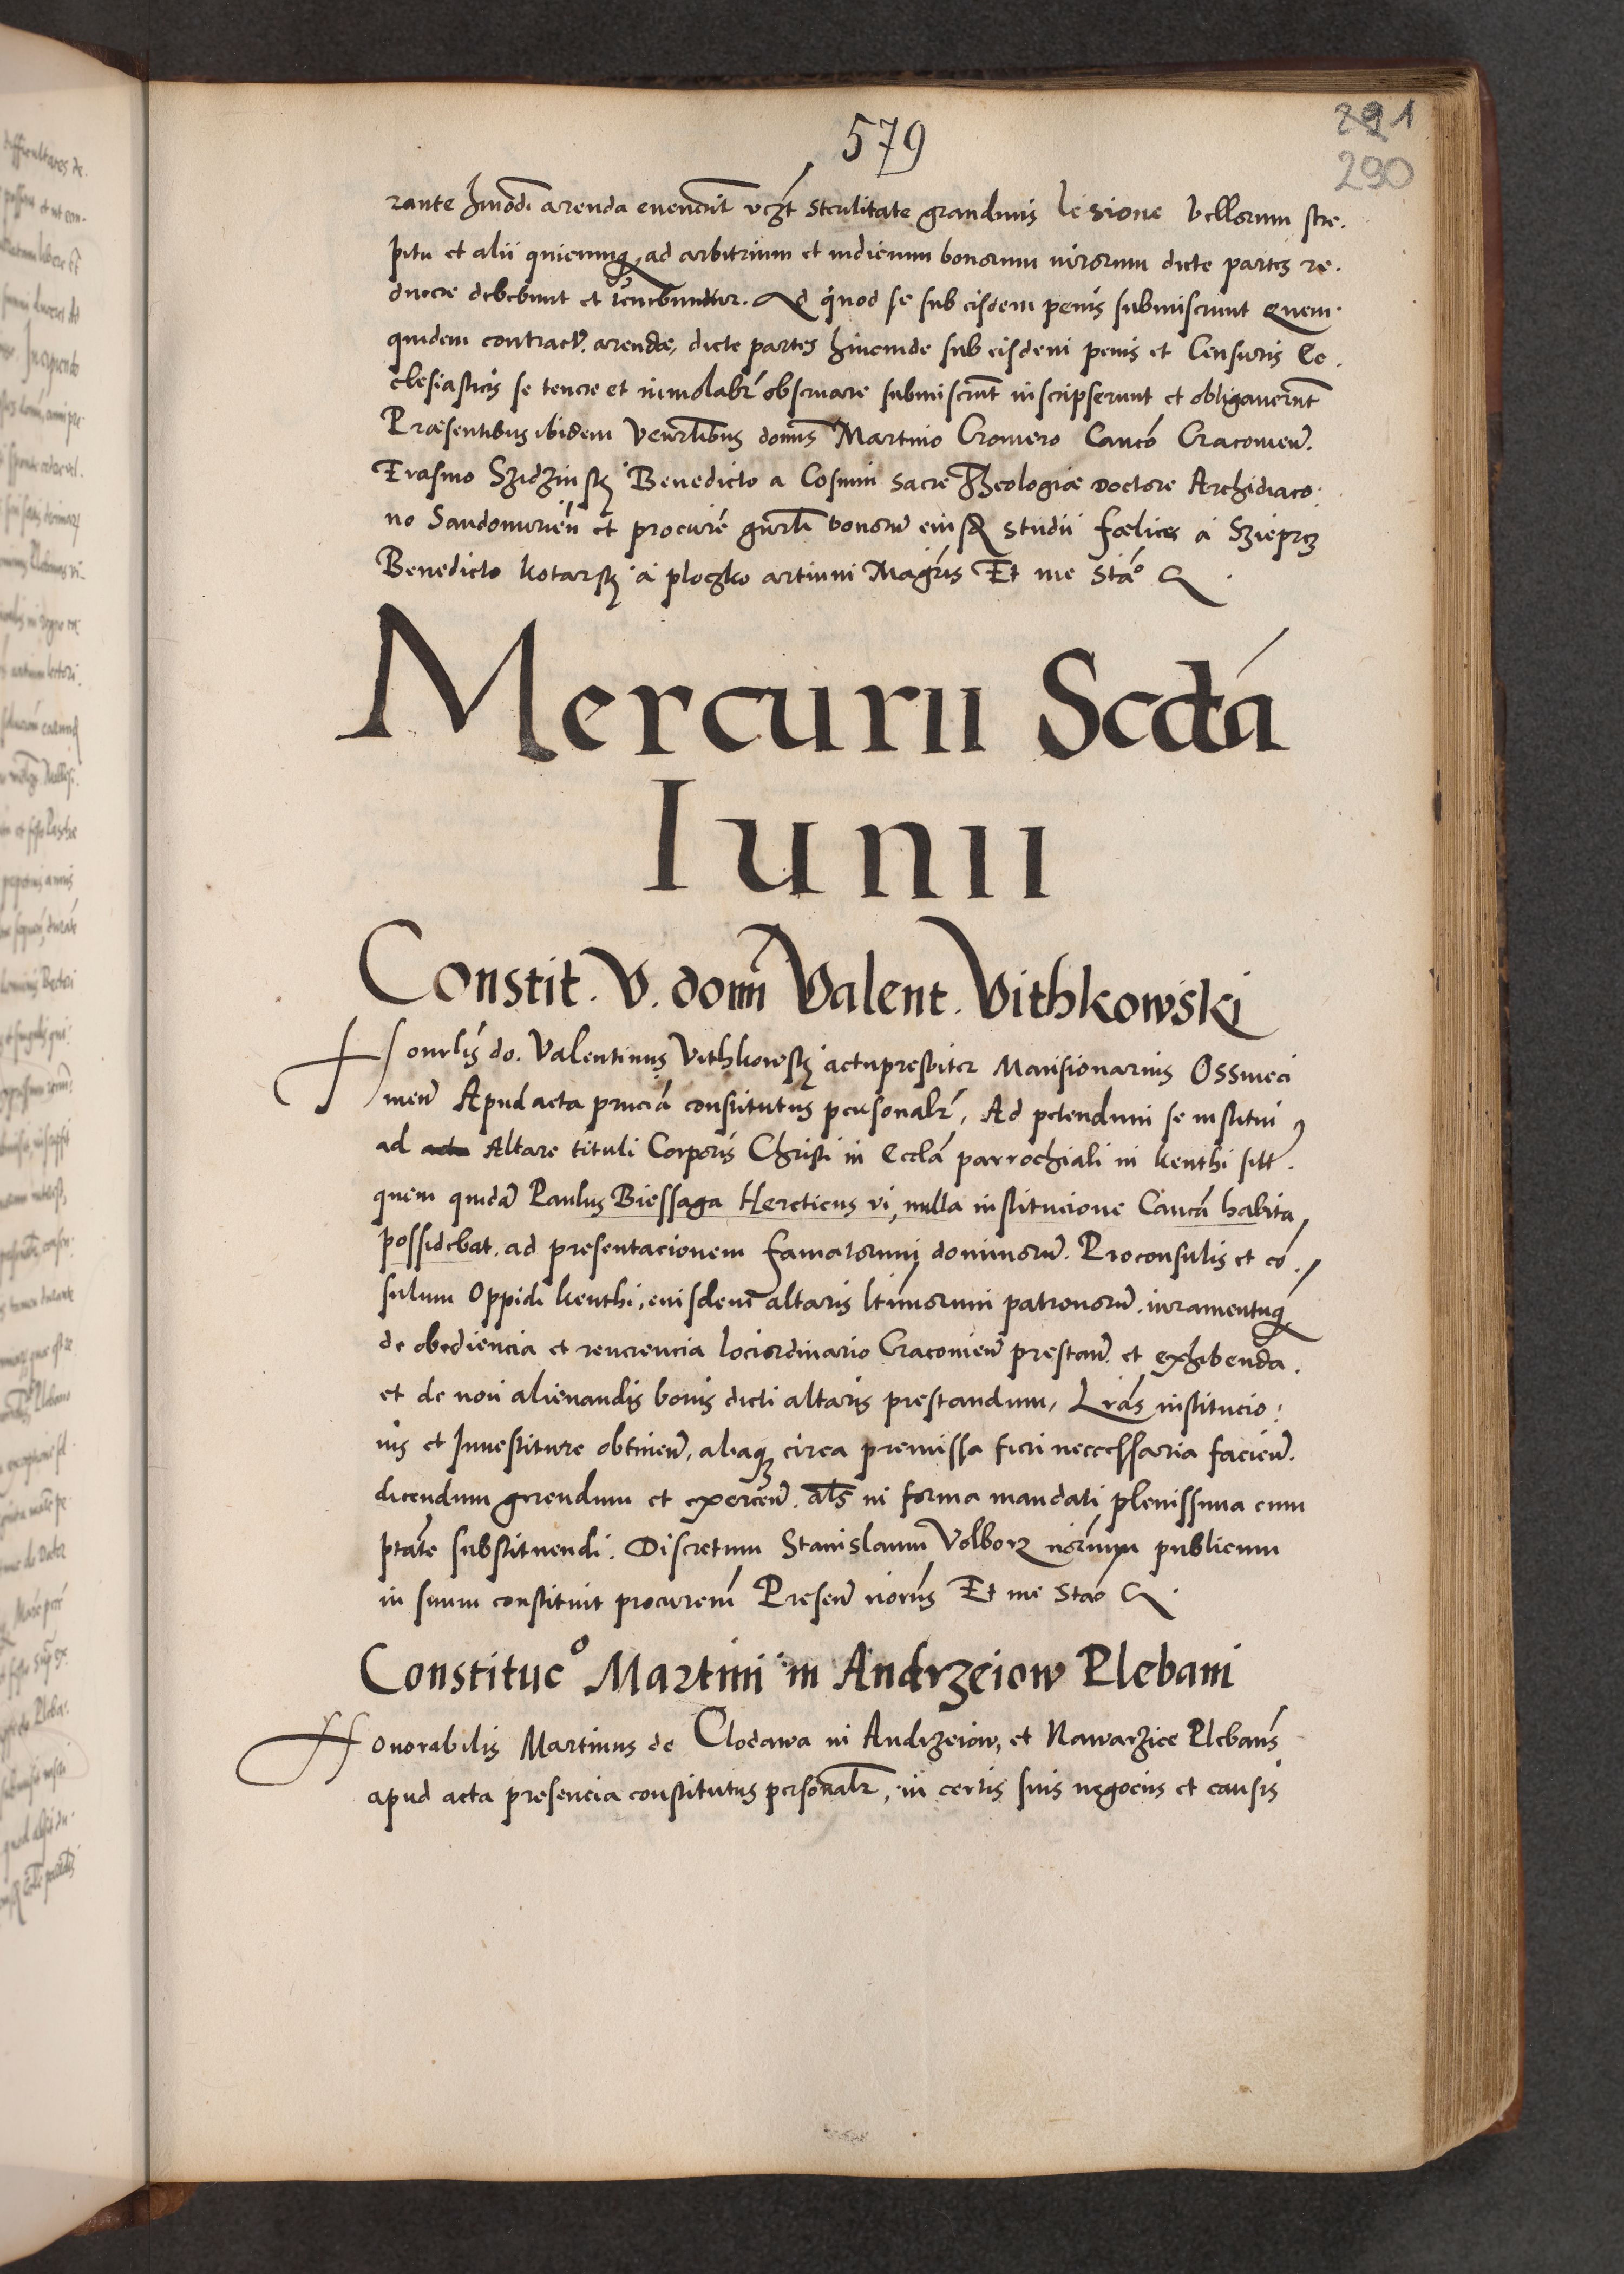 579
291
290
rante hmōdi arenda evenerit vczt sterilitate grandinis lesione bellorum stre.
pitu et alii quicunq, ad arbitrium et indicium bonorum virorum dicte partes re.
ducere debebunt et tenebuntur. Ad quod se sub eisdem penis submiserunt Quem.
quidem contractū arendæ, dicte partes hincinde sub eisdem penis et Censuris Ec.
clesiasticis se tenere et inviolabr̄ observare submiserūt inscripserunt et obligaverūt
Præsentibus ibidem Venerlibus domīs Martino Cromero Canco Cracovieñ.
Erasmo Benedicto a Cosmin Sacre Theologiæ Doctore Archidiaco.
no Sandomirieñ et procure gnrli bonorū eiusd studii fœlice a
Benedicto kotarsky a ploczko artium Magris Et me Stāo
Mercurii Scda
Iunii
Constit. V. domī Valent. Vithkowski
Honrlis do. Valentinus Vithkowsky actu presbiter Mansionarius Osswieci
meñ Apud acta pnciā constitutus personalr, Ad petendum se institui
ad acta Altare tituli Corporis Christi in Ecclā parrochiali in kenthi sitt.
quem quidā Paulus Biessaga Hereticus vi, nulla institucione Cancā habita,
possidebat. ad presentacionem famatorum dominorū. Proconsulis et cō.
sulum Oppidi kenthi, eiusdem altaris ltimorum patronorū. iuramentūq
de obediencia et reverencia loci ordinario Cracovieñ prestañ. et exhibenda.
et de non alienandis bonis dicti altaris prestandum, Lrās institucio:
nis et Investiture obtineñ, aliaq circa premissa fieri neccessaria facieñ.
dicendum gerendum et exerceñ. als in forma mandati plenissima cum
ptāte substituendi. Discretum Stanislaum Volborz norium publicum
in suum constituit procurem̄ Preseñ noriis Et me Stāo
Constituco Martini in Andrzeiow Plebani
Honorabilis Martinus de Clodawa in Andrzeiow, et Nawarzice Plebanus
apud acta presencia constitutus personalr, in certis suis negociis et causis